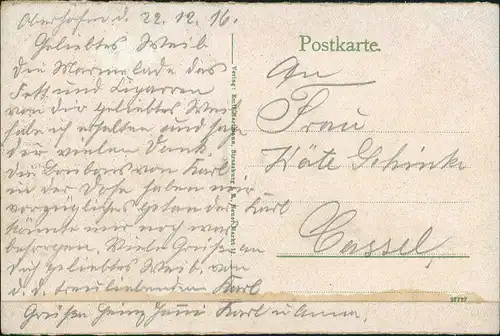 Oberhofen d. 22.12.16.
Geliebtes Weib
Die Marmelade das
Fett und Zigarren
von dir geliebtes Weib
habe ich erhalten und sage
dir vielen Dank
die Bonbons von Karl
in der Dose haben mir
vorzügliches getan der Karl
könnte mir noch was
besorgen. Viele Grüße an
dich geliebtes Weib von
d. d. treuliebenden Karl
Grüße Heinz Karl u Anna.
Verlag: Strassburg
Postkarte.
An
Frau
Käte Schinke
Cassel,